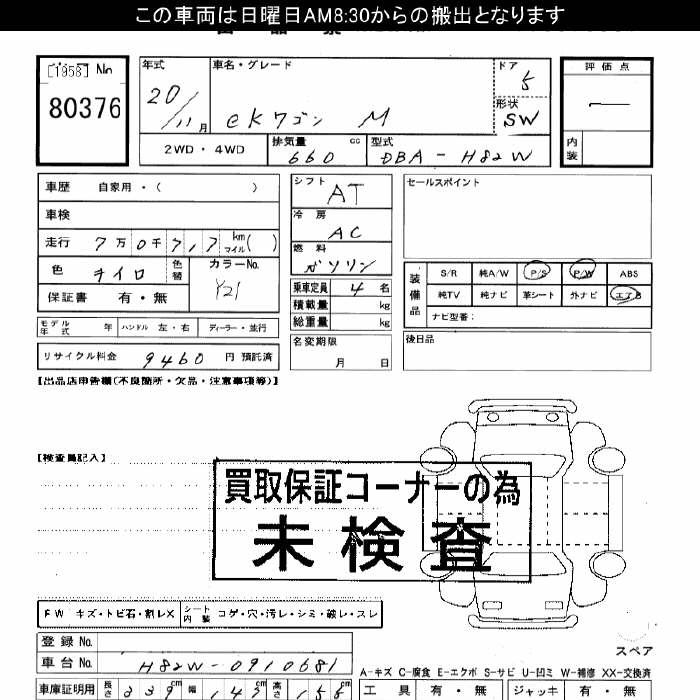 この車両は日曜日AM8:30からの搬出となります
[1958] No
80376
年式
20/11月
車名・グレード
eKワゴン M
ドア
5
形状
SW
評価点
―
内装
2WD・4WD
排気量 cc
660
型式
DBA-H82W
車歴 自家用・( )
車検
走行 7万0千717 km マイル( )
色 キイロ
色替
カラーNo.
Y21
保証書 有・無
シフト
AT
冷房
AC
燃料
ガソリン
乗車定員 4名
積載量 kg
総重量 kg
名変期限
月 日
セールスポイント
装備品
S/R 純A/W P/S P/W ABS
純TV 純ナビ 革シート 外ナビ エアB
ナビ型番:
後日品
モデル年式 年 ハンドル 左・右 ディーラー・並行
リサイクル料金 9460 円 預託済
【出品店申告欄(不良箇所・欠品・注意事項等)】
【検査員記入】
買取保証コーナーの為
未検査
FW キズ・トビ石・割レX
シート内装 コゲ・穴・汚レ・シミ・破レ・スレ
登録 No.
車台 No. H82W-0910681
スペア
A-キズ C-腐食 E-エクボ S-サビ U-凹ミ W-補修 XX-交換済
車庫証明用 長さ 339cm 幅 147cm 高さ 155cm
工具 有・無 ジャッキ 有・無